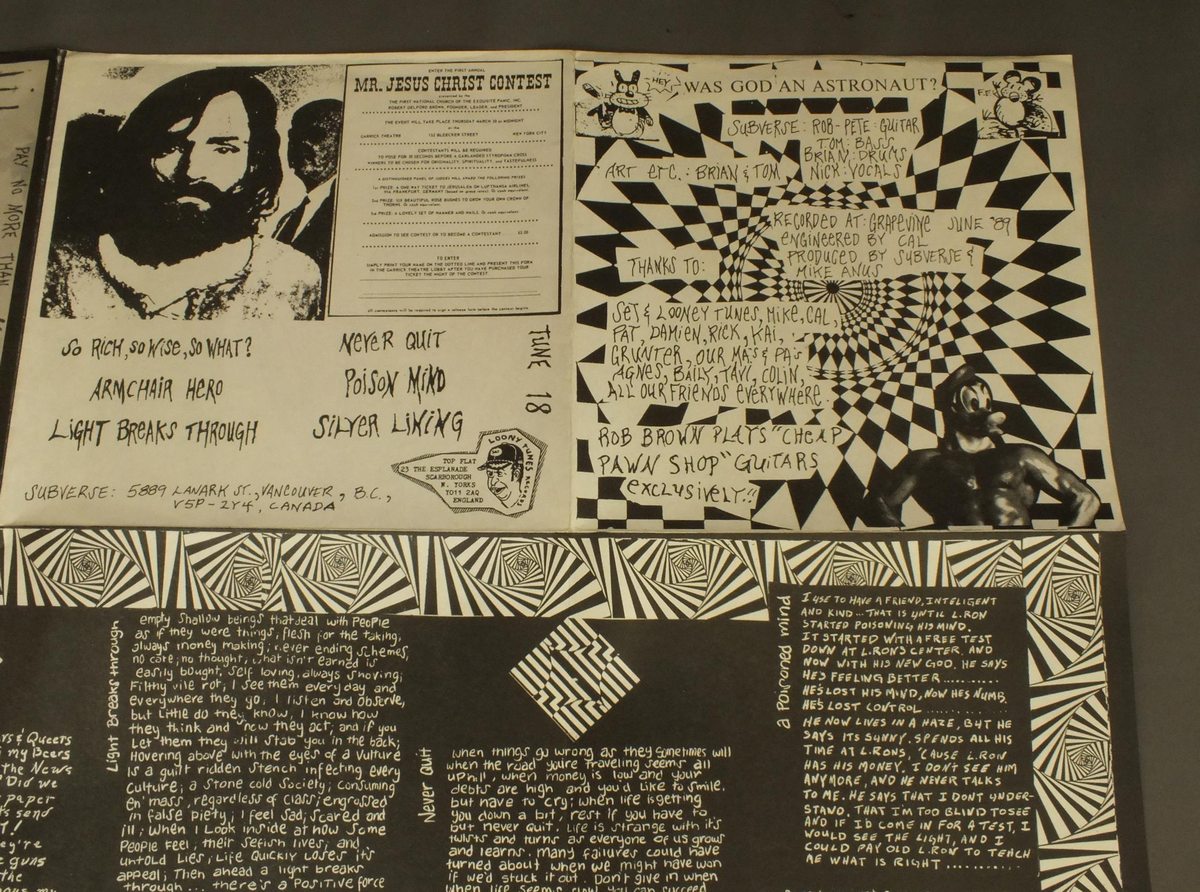 PAY NO MORE THAN
ENTER THE FIRST ANNUAL
MR. JESUS CHRIST CONTEST
presented by the
THE FIRST NATIONAL CHURCH OF THE EXQUISITE PANIC, INC.
ROBERT DELFORD BROWN, FOUNDER, LEADER, and PRESIDENT
THE EVENT WILL TAKE PLACE THURSDAY MARCH 30 at MIDNIGHT
at the
GARRICK THEATRE 152 BLEECKER STREET NEW YORK CITY
CONTESTANTS WILL BE REQUIRED
TO POSE FOR 30 SECONDS BEFORE A GARLANDED STYROFOAM CROSS
WINNERS TO BE CHOSEN FOR ORIGINALITY, SPIRITUALITY, and TASTEFULNESS
A DISTINGUISHED PANEL OF JUDGES WILL AWARD THE FOLLOWING PRIZES
1st PRIZE: A ONE WAY TICKET TO JERUSALEM ON LUFTHANSA AIRLINES,
VIA FRANKFURT, GERMANY (based on group rate) Or cash equivalent
2nd PRIZE: SIX BEAUTIFUL ROSE BUSHES TO GROW YOUR OWN CROWN OF
THORNS. Or cash equivalent.
3rd PRIZE: A LOVELY SET OF HAMMER AND NAILS. Or cash equivalent
ADMISSION TO SEE CONTEST OR TO BECOME A CONTESTANT
TO ENTER
SIMPLY PRINT YOUR NAME ON THE DOTTED LINE AND PRESENT THIS FORM
IN THE GARRICK THEATRE LOBBY AFTER YOU HAVE PURCHASED YOUR
TICKET THE NIGHT OF THE CONTEST.
all contestants will be required to sign a release form before the contest begins
SO RICH, SO WISE, SO WHAT?
ARMCHAIR HERO
LIGHT BREAKS THROUGH
NEVER QUIT
POISON MIND
SILVER LINING
TUNE 18
SUBVERSE: 5889 LANARK ST., VANCOUVER, B.C.,
V5P-2Y4, CANADA
TOP FLAT
23 THE ESPLANADE
SCARBOROUGH
N. YORKS
YO11 2AQ
ENGLAND
LOONY TUNES RECORDS
HEY
WAS GOD AN ASTRONAUT?
F.F
SUBVERSE: ROB-PETE: GUITAR
TOM: BASS
BRIAN: DRUMS
NICK: VOCALS
ART ETC.: BRIAN & TOM
RECORDED AT: GRAPEVINE JUNE '89
ENGINEERED BY CAL
PRODUCED BY SUBVERSE &
MIKE ANUS
THANKS TO:
SEJ & LOONEY TUNES, MIKE, CAL,
PAT, DAMIEN, RICK, KAI,
GRUNTER, OUR MA'S & PA'S
AGNES, BAILY, TAYL, COLIN,
ALL OUR FRIENDS EVERYWHERE.
ROB BROWN PLAYS "CHEAP
PAWN SHOP" GUITARS
EXCLUSIVELY!!
& Queers
my Beers
The News
Did we
paper
send
guns
the
Light Breaks through
empty shallow beings that deal with People
as if they were things, flesh for the taking;
always money making; never ending schemes,
no care; no thought, what isn't earned is
easily bought, self loving, always shoving;
Filthy vile rot; I see them every day and
everywhere they go; I listen and observe,
but little do they know, I know how
they think and how they act; and if you
Let them they will stab you in the back;
Hovering above with the eyes of a Vulture
is a guilt ridden stench infecting every
Culture; a stone cold society; consuming
en' mass, regardless of class; engrossed
in false piety; I feel sad; scared and
ill; when I Look inside at how some
People feel; their selfish lives; and
untold Lies; Life Quickly Loses it's
appeal; Then ahead a light breaks
through ... there's a POSITIVE force
Never Quit
when things go wrong as they sometimes will
when the road you're traveling seems all
uphill, when money is low and your
debts are high and you'd like to smile.
but have to cry; when life is getting
you down a bit, rest if you have to
but never quit. Life is strange with it's
twists and turns as everyone of us grow
and learns. many failures could have
turned about when we might have won
if we'd stuck it out. Don't give in when
when life seems slow you can succeed
a Poisoned mind
I USE TO HAVE A FRIEND, INTELIGENT
AND KIND... THAT IS UNTIL L.RON
STARTED POISONING HIS MIND,
IT STARTED WITH A FREE TEST
DOWN AT L.RON'S CENTER. AND
NOW WITH HIS NEW GOD. HE SAYS
HE'S FEELING BETTER...........
HE'S LOST HIS MIND, NOW HES NUMB,
HE'S LOST CONTROL............
HE NOW LIVES IN A HAZE, BUT HE
SAYS ITS SUNNY. SPENDS ALL HIS
TIME AT L.RONS, 'CAUSE L.RON
HAS HIS MONEY. I DON'T SEE HIM
ANYMORE, AND HE NEVER TALKS
TO ME. HE SAYS THAT I DONT UNDER-
STAND, THAT I'M TOO BLIND TO SEE
AND IF I'D COME IN FOR A TEST, I
WOULD SEE THE LIGHT, AND I
COULD PAY OLD L.RON TO TEACH
ME WHAT IS RIGHT..........